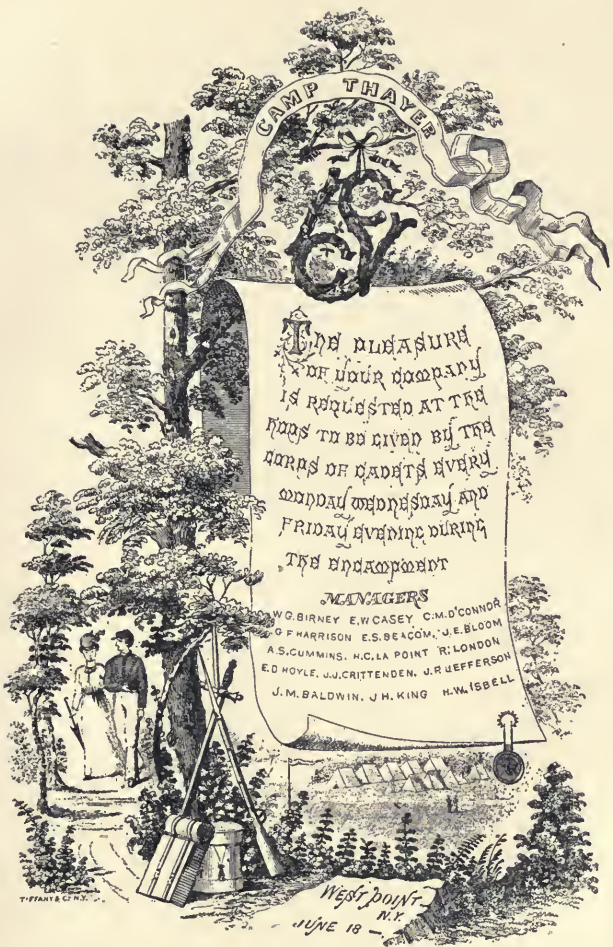 CAMP THAYER
THE PLEASURE
OF YOUR COMPANY
IS REQUESTED AT THE
HOPS TO BE GIVEN BY THE
CORPS OF CADETS EVERY
MONDAY WEDNESDAY AND
FRIDAY EVENING DURING
THE ENCAMPMENT
MANAGERS
W.G. BIRNEY E.W CASEY C.M. D'CONNOR
G F HARRISON E.S. BEACOM. J.E. BLOOM
A.S. CUMMINS. H.C. LA POINT R. LONDON
E.D HOYLE. J.J. CRITTENDEN. J.R JEFFERSON
J.M. BALDWIN. J H. KING H.W. ISBELL
WEST POINT
N.Y.
JUNE 18 —.
TIFFANY & CO N.Y.